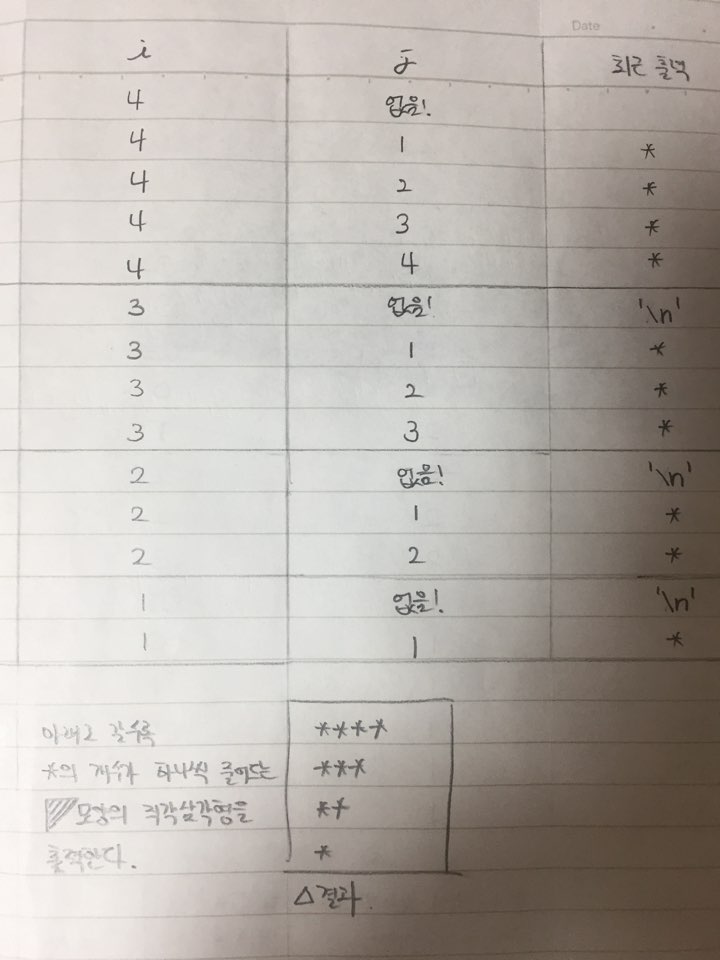 Date
i j 최근 출력
4 없음!
4 1 *
4 2 *
4 3 *
4 4 *
3 없음! '\n'
3 1 *
3 2 *
3 3 *
2 없음! '\n'
2 1 *
2 2 *
1 없음! '\n'
1 1 *
아래로 갈수록
*의 개수가 하나씩 줄어드는
모양의 직각삼각형을
출력한다.
****
***
**
*
△결과.